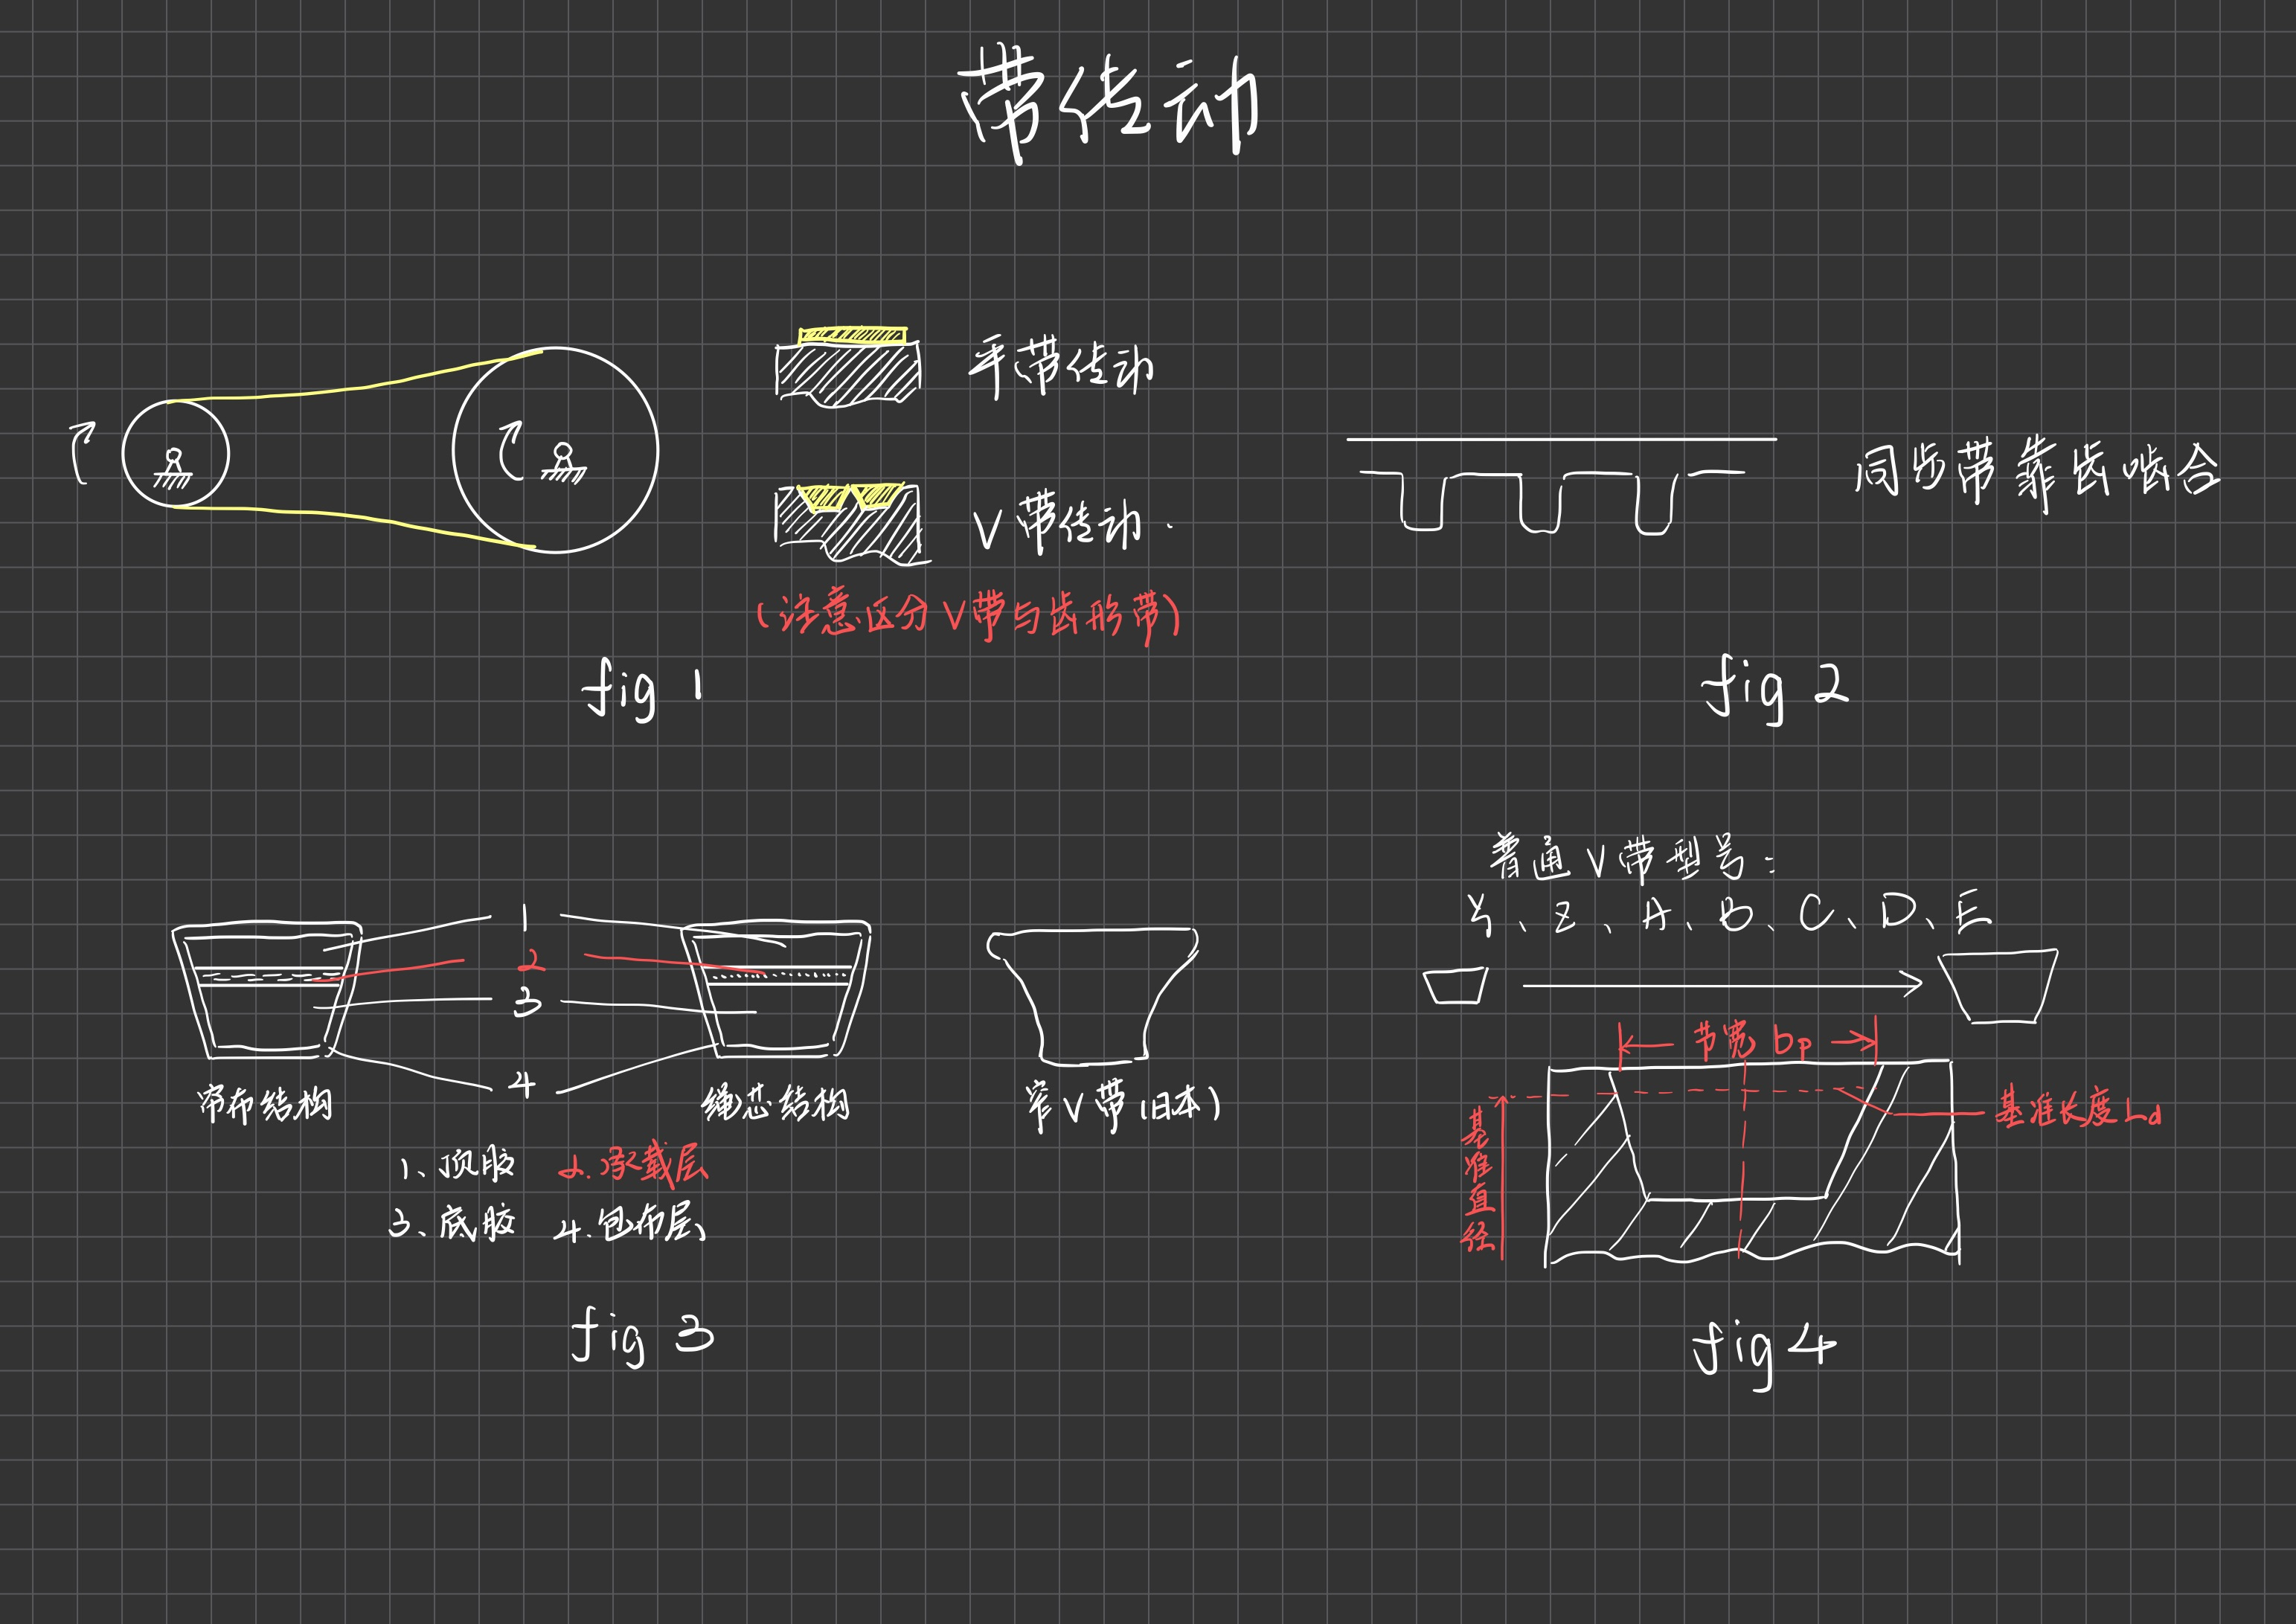 带传动
平带传动
V带传动.
(注意区分V带与齿形带)
fig 1
同步带靠齿啮合
fig 2
1
2
3
4
帘布结构
绳芯结构
窄V带(日本)
1、顶胶 2.承载层
3、底胶 4.包布层
fig 3
普通V带型号:
Y、Z、A、B、C、D、E
节宽 bp
基准直径
基准长度Ld
fig 4